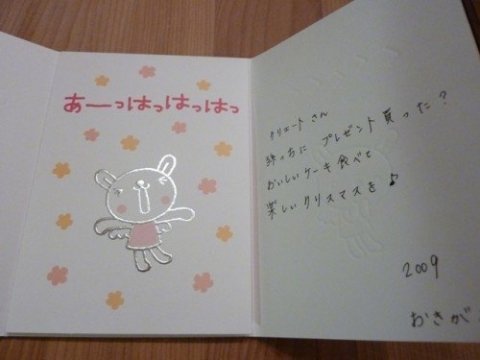 あーっはっはっはっ
クリエートさん
プレゼント買った?
おいしいケーキ食べて
楽しいクリスマスを♪
2009
おきが